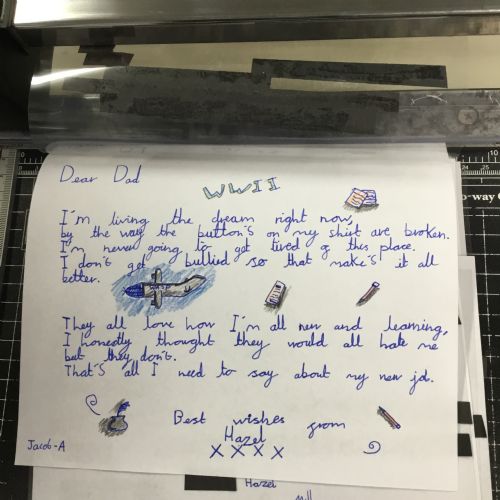 Dear Dad
WWII
I'm living the dream right now,
by the way the button's on my shirt are broken.
I'm never going to get tired of this place.
I don't get bullied so that make's it all
better.
They all love how I'm all new and learning,
I honestly thought they would all hate me
but they don't.
That's all I need to say about my new job.
Best wishes
from
Hazel
X X X X
Jacob-A
Hazel